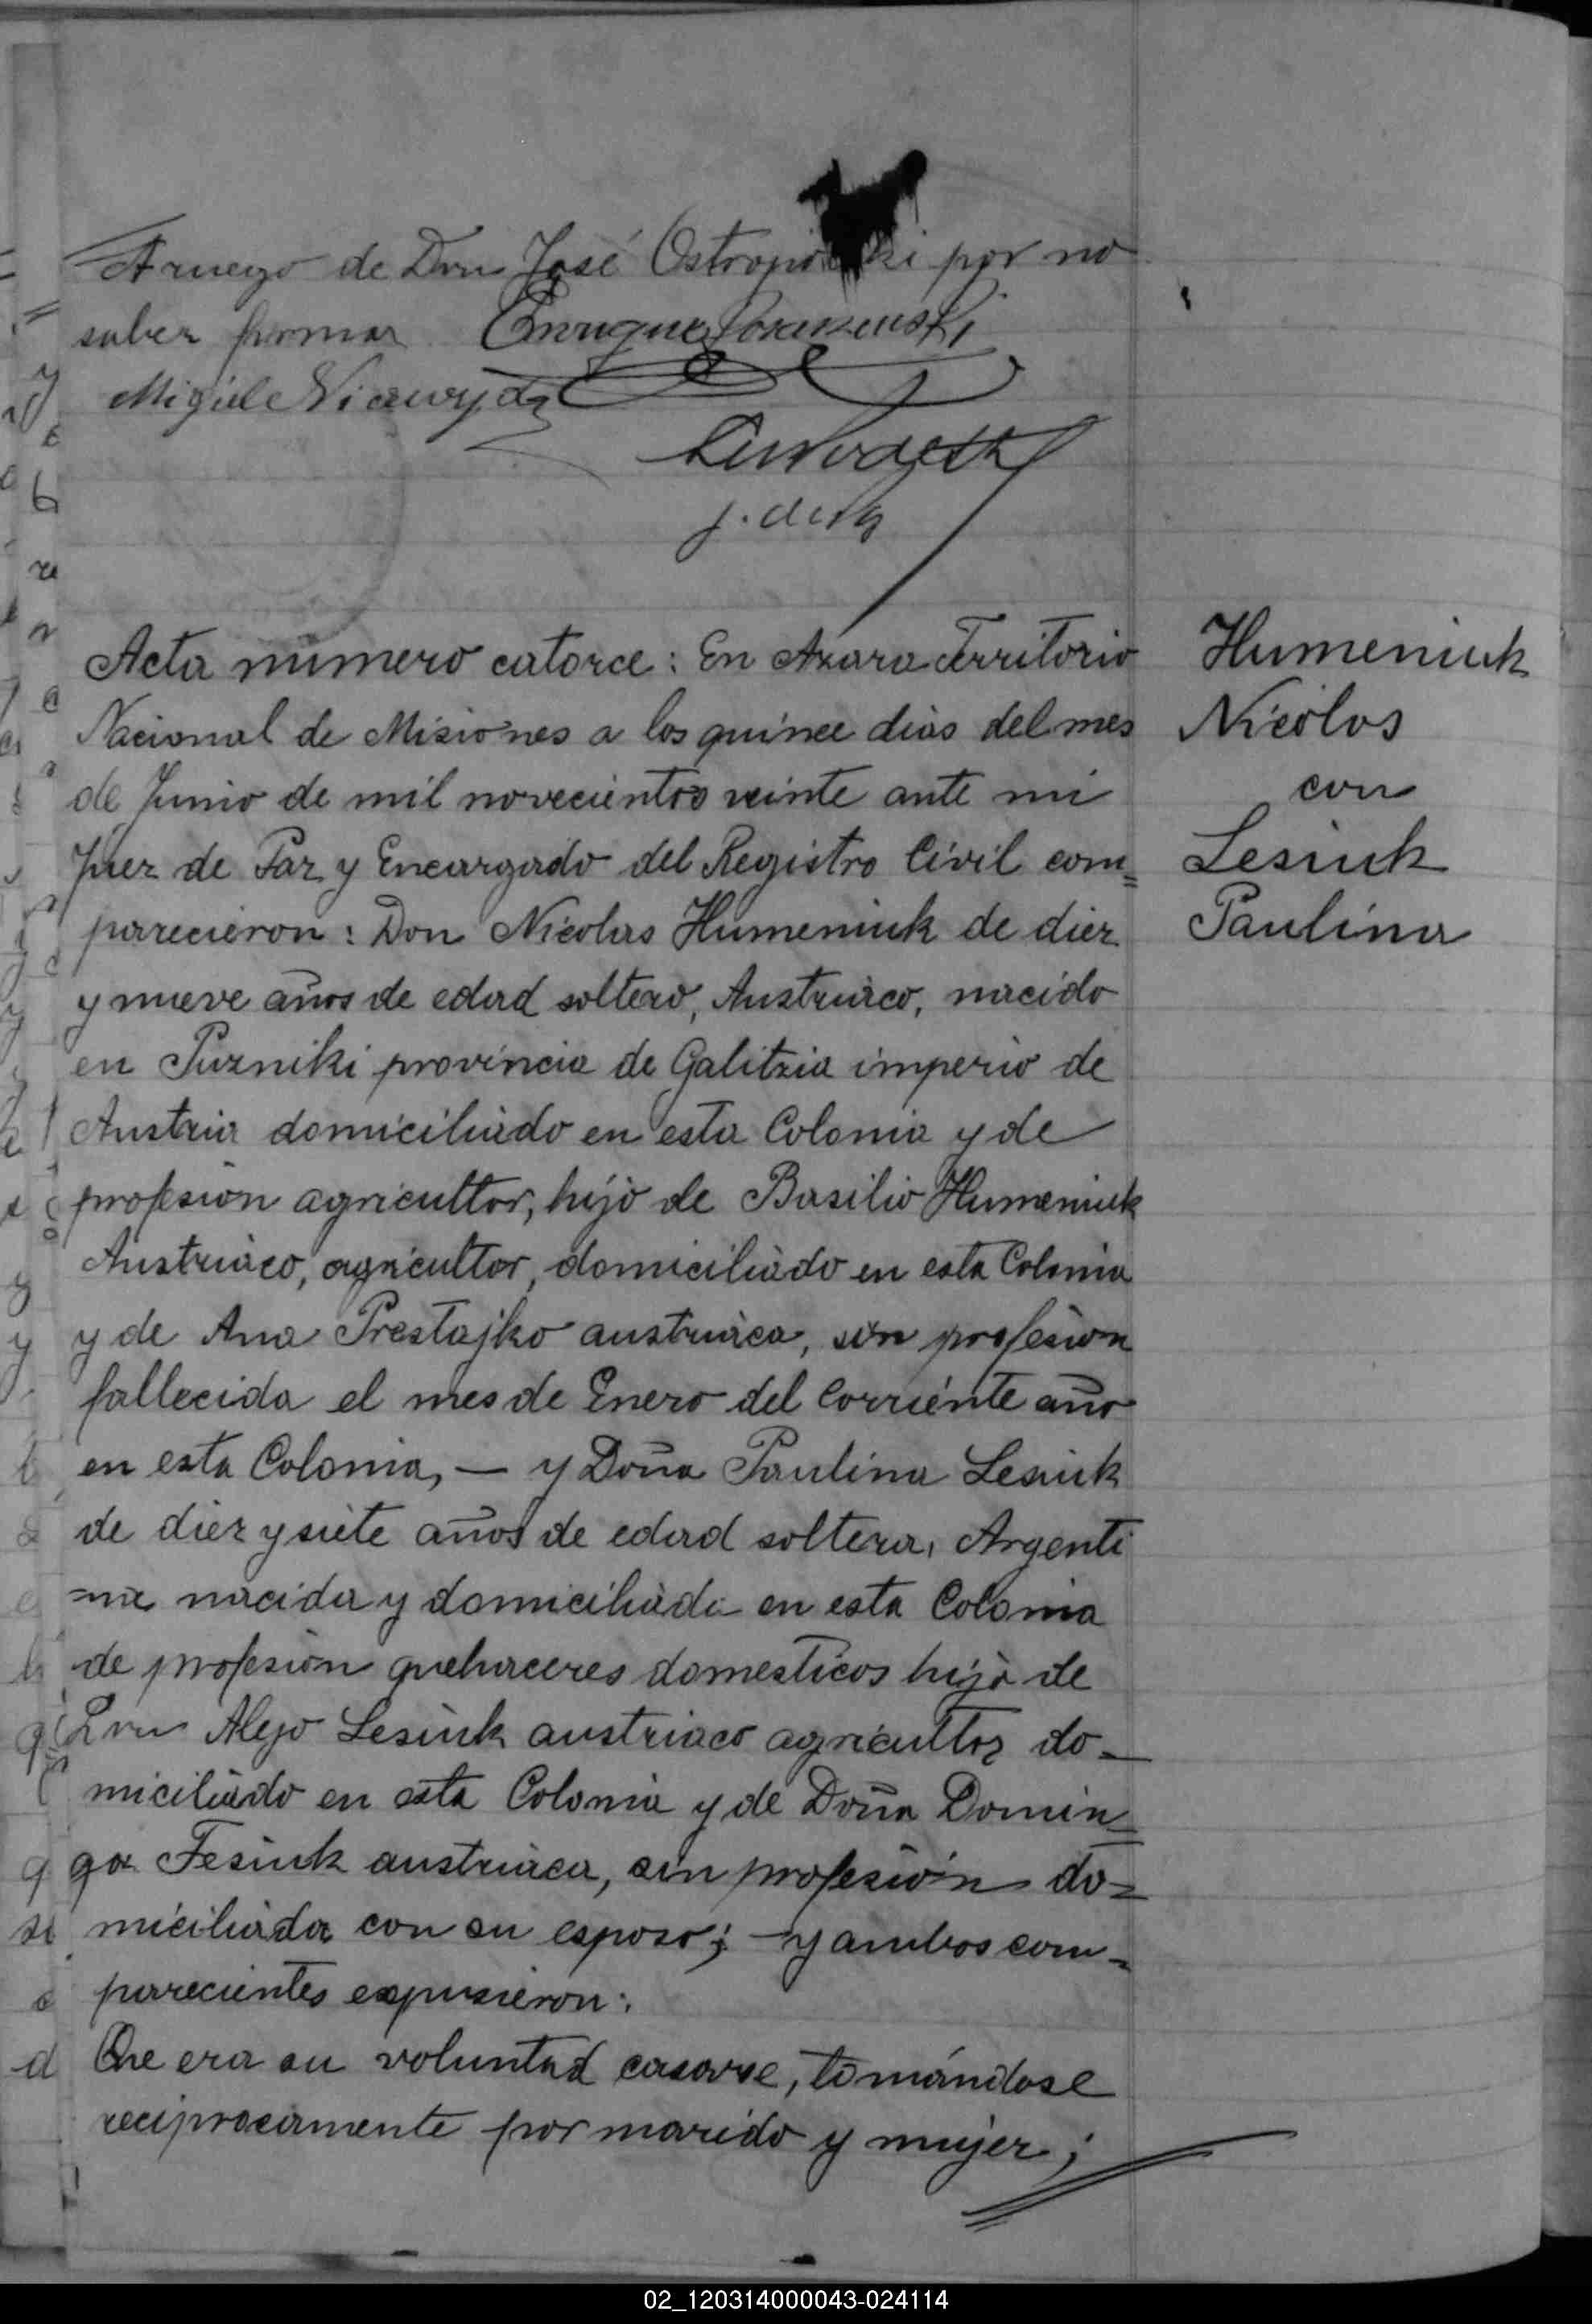 A ruego de Don José por no
saber firmar Enrique
Miguel
j. de Paz
Acta número catorce: En Azara Territorio
Nacional de Misiones a los quince dias del mes
de Junio de mil novecientos veinte ante mi
Juez de Paz y Encargado del Registro Civil com=
parecieron: Don Nicolas Humeniuk de diez
y nueve años de edad soltero, Austriaco, nacido
en Puzniki provincia de Galitzia imperio de
Austria domiciliado en esta Colonia y de
profesion agricultor, hijo de Basilio Humeniuk
Austriaco, agricultor, domiciliado en esta Colonia
y de Ana Prestajko austriaca, sin profesion
fallecida el mes de Enero del corriente año
en esta Colonia, — y Doña Paulina Lesiuk
de diez y siete años de edad soltera, Argenti
=na nacida y domiciliada en esta Colonia
de profesion quehaceres domesticos hija de
Don Alejo Lesiuk austriaco agricultor do-
miciliado en esta Colonia y de Doña Domin=
ga Fesiuk austriaca, sin profesión do=
miciliada con su esposo; — y ambos com-
parecientes expusieron:
Que era su voluntad casarse, tomándose
reciprocamente por marido y mujer;
Humeniuk
Nicolas
con
Lesiuk
Paulina
02_120314000043-024114